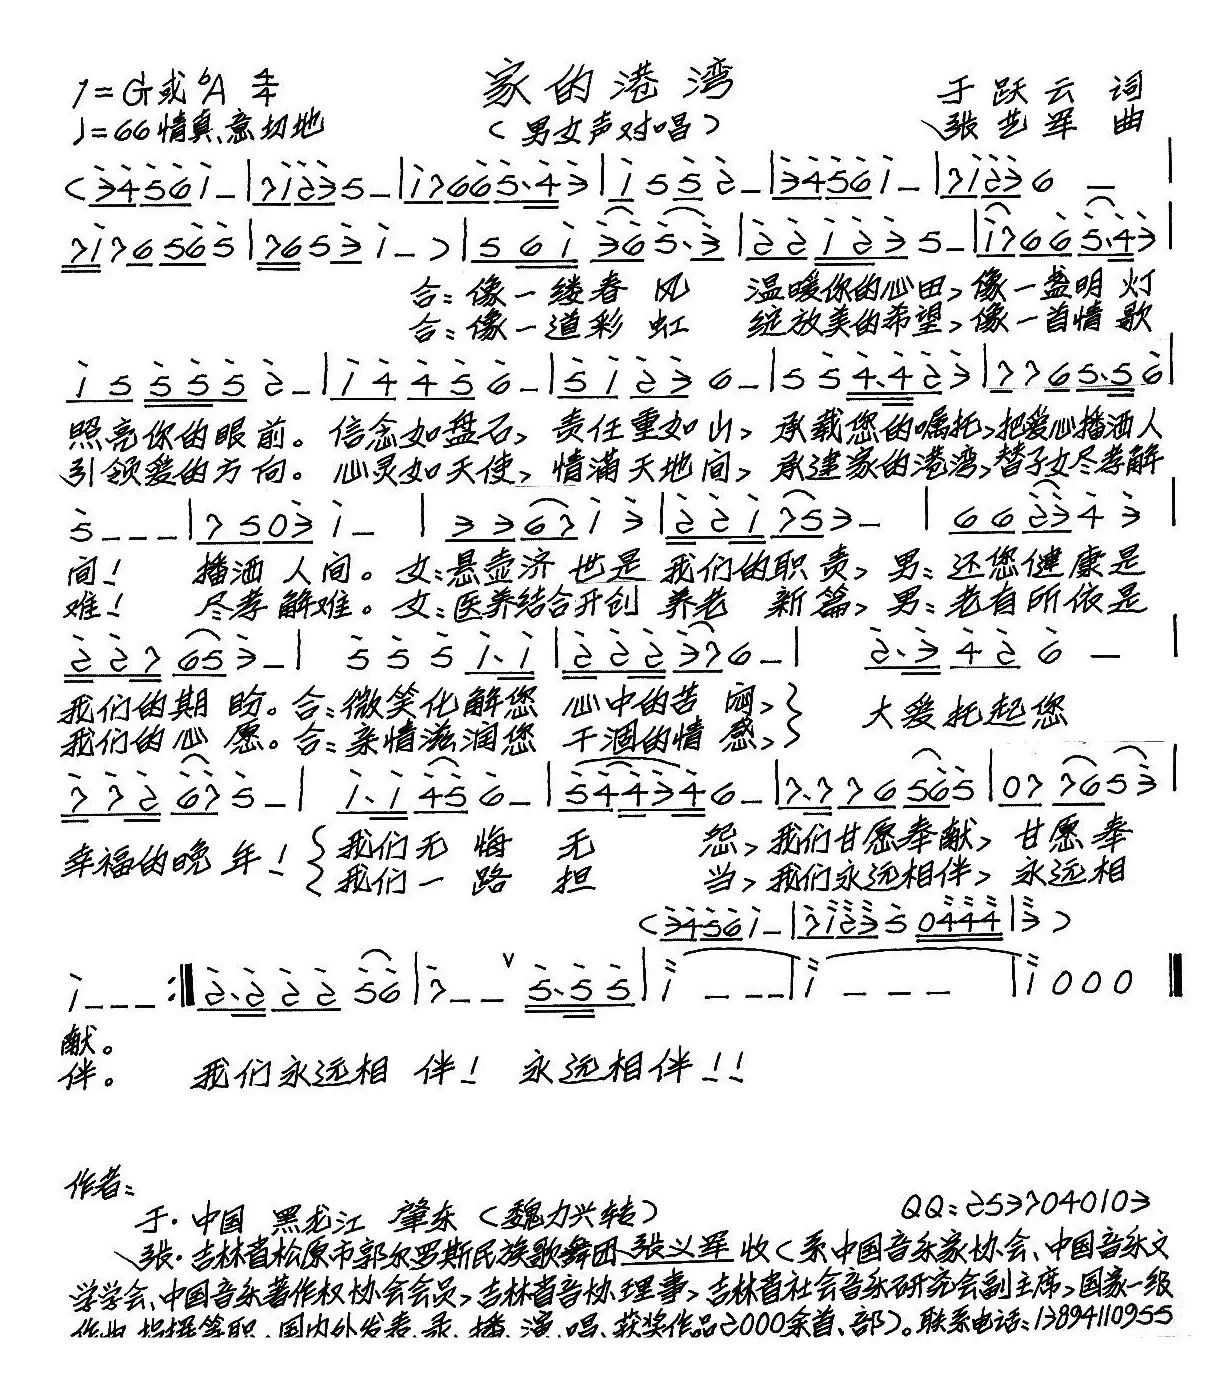 1=G或♭A 4/4 家的港湾 于跃云 词
♩=66 情真、意切地 (男女声对唱) 张艺军 曲
(3456i - | 7i235 - | i7665·43 | i552 - | 3456i - | 7i236 - |
7i76565 | 7653i - ) | 56i365·3 | 22i235 - | i7665·43 |
合:像一缕春风 温暖你的心田,像一盏明灯
合:像一道彩虹 绽放美的希望,像一首情歌
i55552 - | i4456 - | 5i236 - | 554·423 | 7765·56 |
照亮你的眼前。信念如盘石,责任重如山,承载您的嘱托,把爱心播洒人
引领爱的方向。心灵如天使,情满天地间,承建家的港湾,替子女尽孝解
5 - - - | 7503i - | 3367i3 | 22i753 - | 662343 |
间! 播洒人间。女:悬壶济世是我们的职责,男:还您健康是
难! 尽孝解难。女:医养结合开创养老新篇,男:老有所依是
227653 - | 555i·i | 222376 - | 2·3426 - |
我们的期盼。合:微笑化解您心中的苦闷,} 大爱托起您
我们的心愿。合:亲情滋润您干涸的情感,}
772675 - | i·i456 - | 544346 - | 7·776565 | 077653 |
幸福的晚年! {我们无悔无怨,我们甘愿奉献,甘愿奉
{我们一路担当,我们永远相伴,永远相
(3456i - | 7i235 0444 | 3 )
i - - - :‖ 2·22256 | 7 - - ∨ 5·55 | i - - - | i - - - | i000 ‖
献。
伴。 我们永远相伴! 永远相伴!!
作者:
于·中国 黑龙江 肇东(魏力兴转) QQ:2537040103
张·吉林省松原市郭尔罗斯民族歌舞团张义军收(系中国音乐家协会、中国音乐文
学学会、中国音乐著作权协会会员,吉林省音协理事,吉林省社会音乐研究会副主席,国家一级
作曲、指挥等职,国内外发表、录、播、演、唱、获奖作品2000余首、部)。联系电话:13894110955